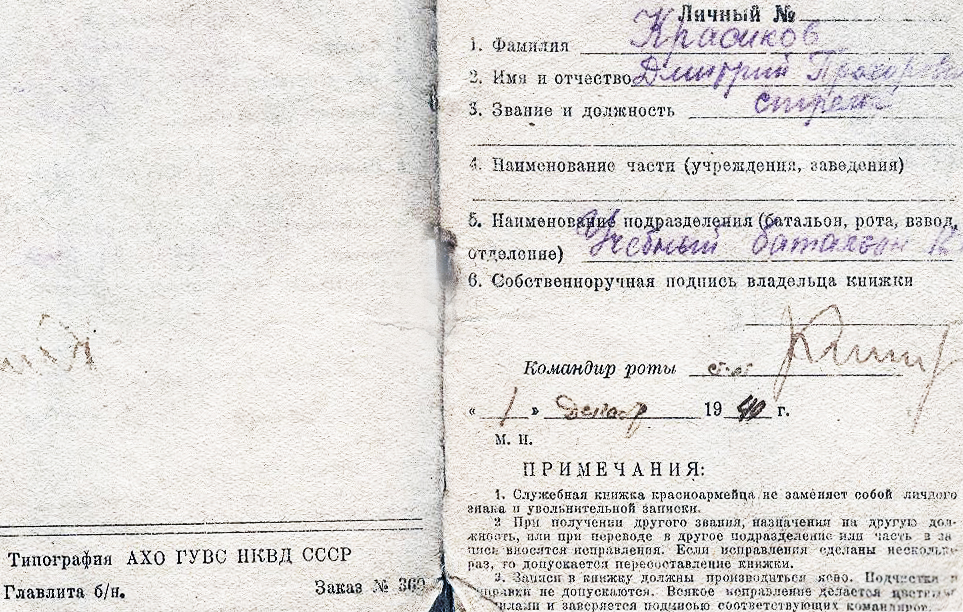 Типография АХО ГУВС НКВД СССР
Главлита б/н. Заказ № 369
Личный №
1. Фамилия Красиков
2. Имя и отчество Дмитрий
3. Звание и должность
4. Наименование части (учреждения, заведения)
5. Наименование подразделения (батальон, рота, взвод,
отделение) Учебный батальон
6. Собственноручная подпись владельца книжки
Командир роты
« 1 » 19 40 г.
М. П.
ПРИМЕЧАНИЯ:
1. Служебная книжка красноармейца не заменяет собой личного
знака и увольнительной записки.
2 При получении другого звания, назначения на другую дол-
жность, или при переводе в другое подразделение или часть в за
пись вносятся исправления. Если исправления сделаны несколько
раз, то допускается пересоставление книжки.
3. Записи в книжку должны производиться ясно. Подчистки и
не допускаются. Всякое исправление делается
и заверяется подписью соответствующих командиров.